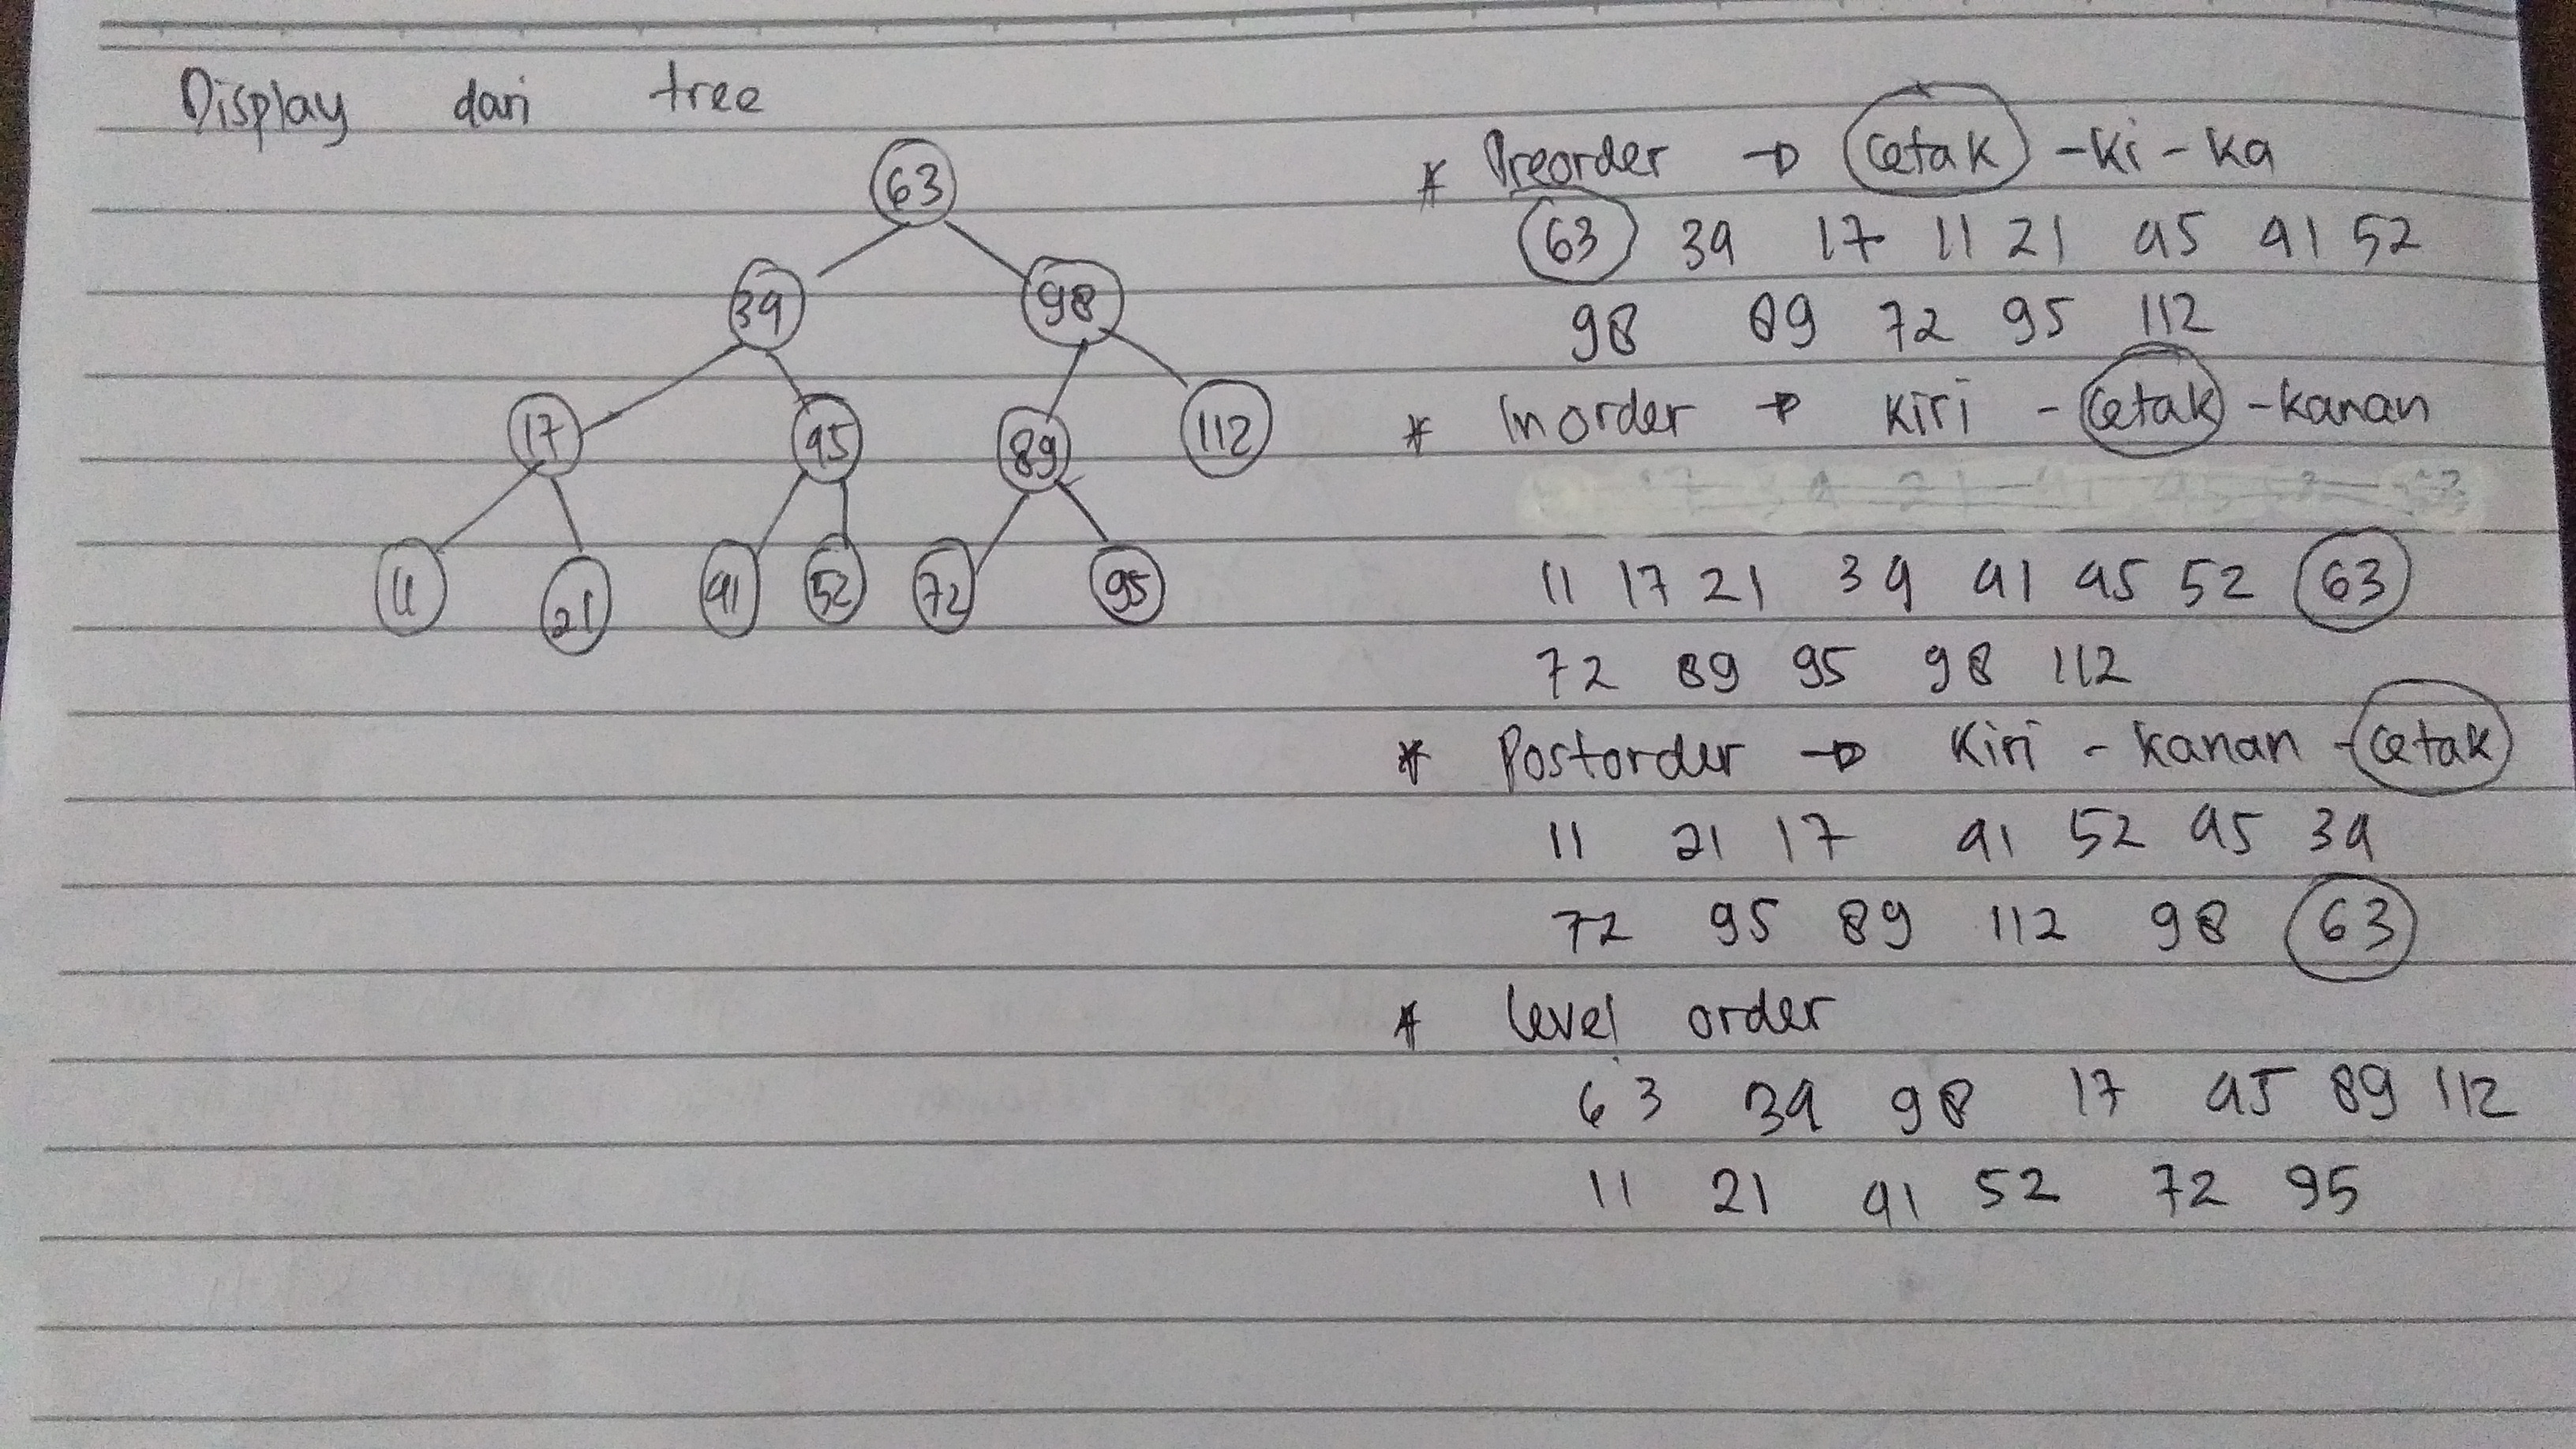 Display dari tree
63
34 98
17 45 89 112
11 21 41 52 72 95
* Preorder → Cetak - Ki - Ka
63 34 17 11 21 45 41 52
98 89 72 95 112
* Inorder → Kiri - Cetak - Kanan
11 17 21 34 41 45 52 63
72 89 95 98 112
* Postorder → Kiri - Kanan - Cetak
11 21 17 41 52 45 34
72 95 89 112 98 63
* Level order
63 34 98 17 45 89 112
11 21 41 52 72 95